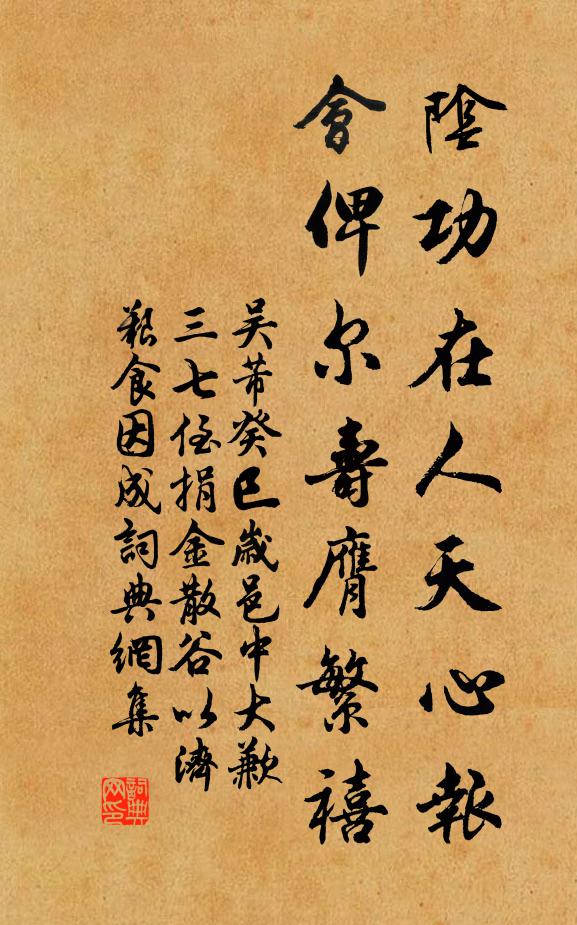 陰功在人天心報
會俾尔壽膺繁禧
吴芾癸巳歲邑中大歉
三七侄捐金散谷以濟
艱食因成詞典網集
詞典網印